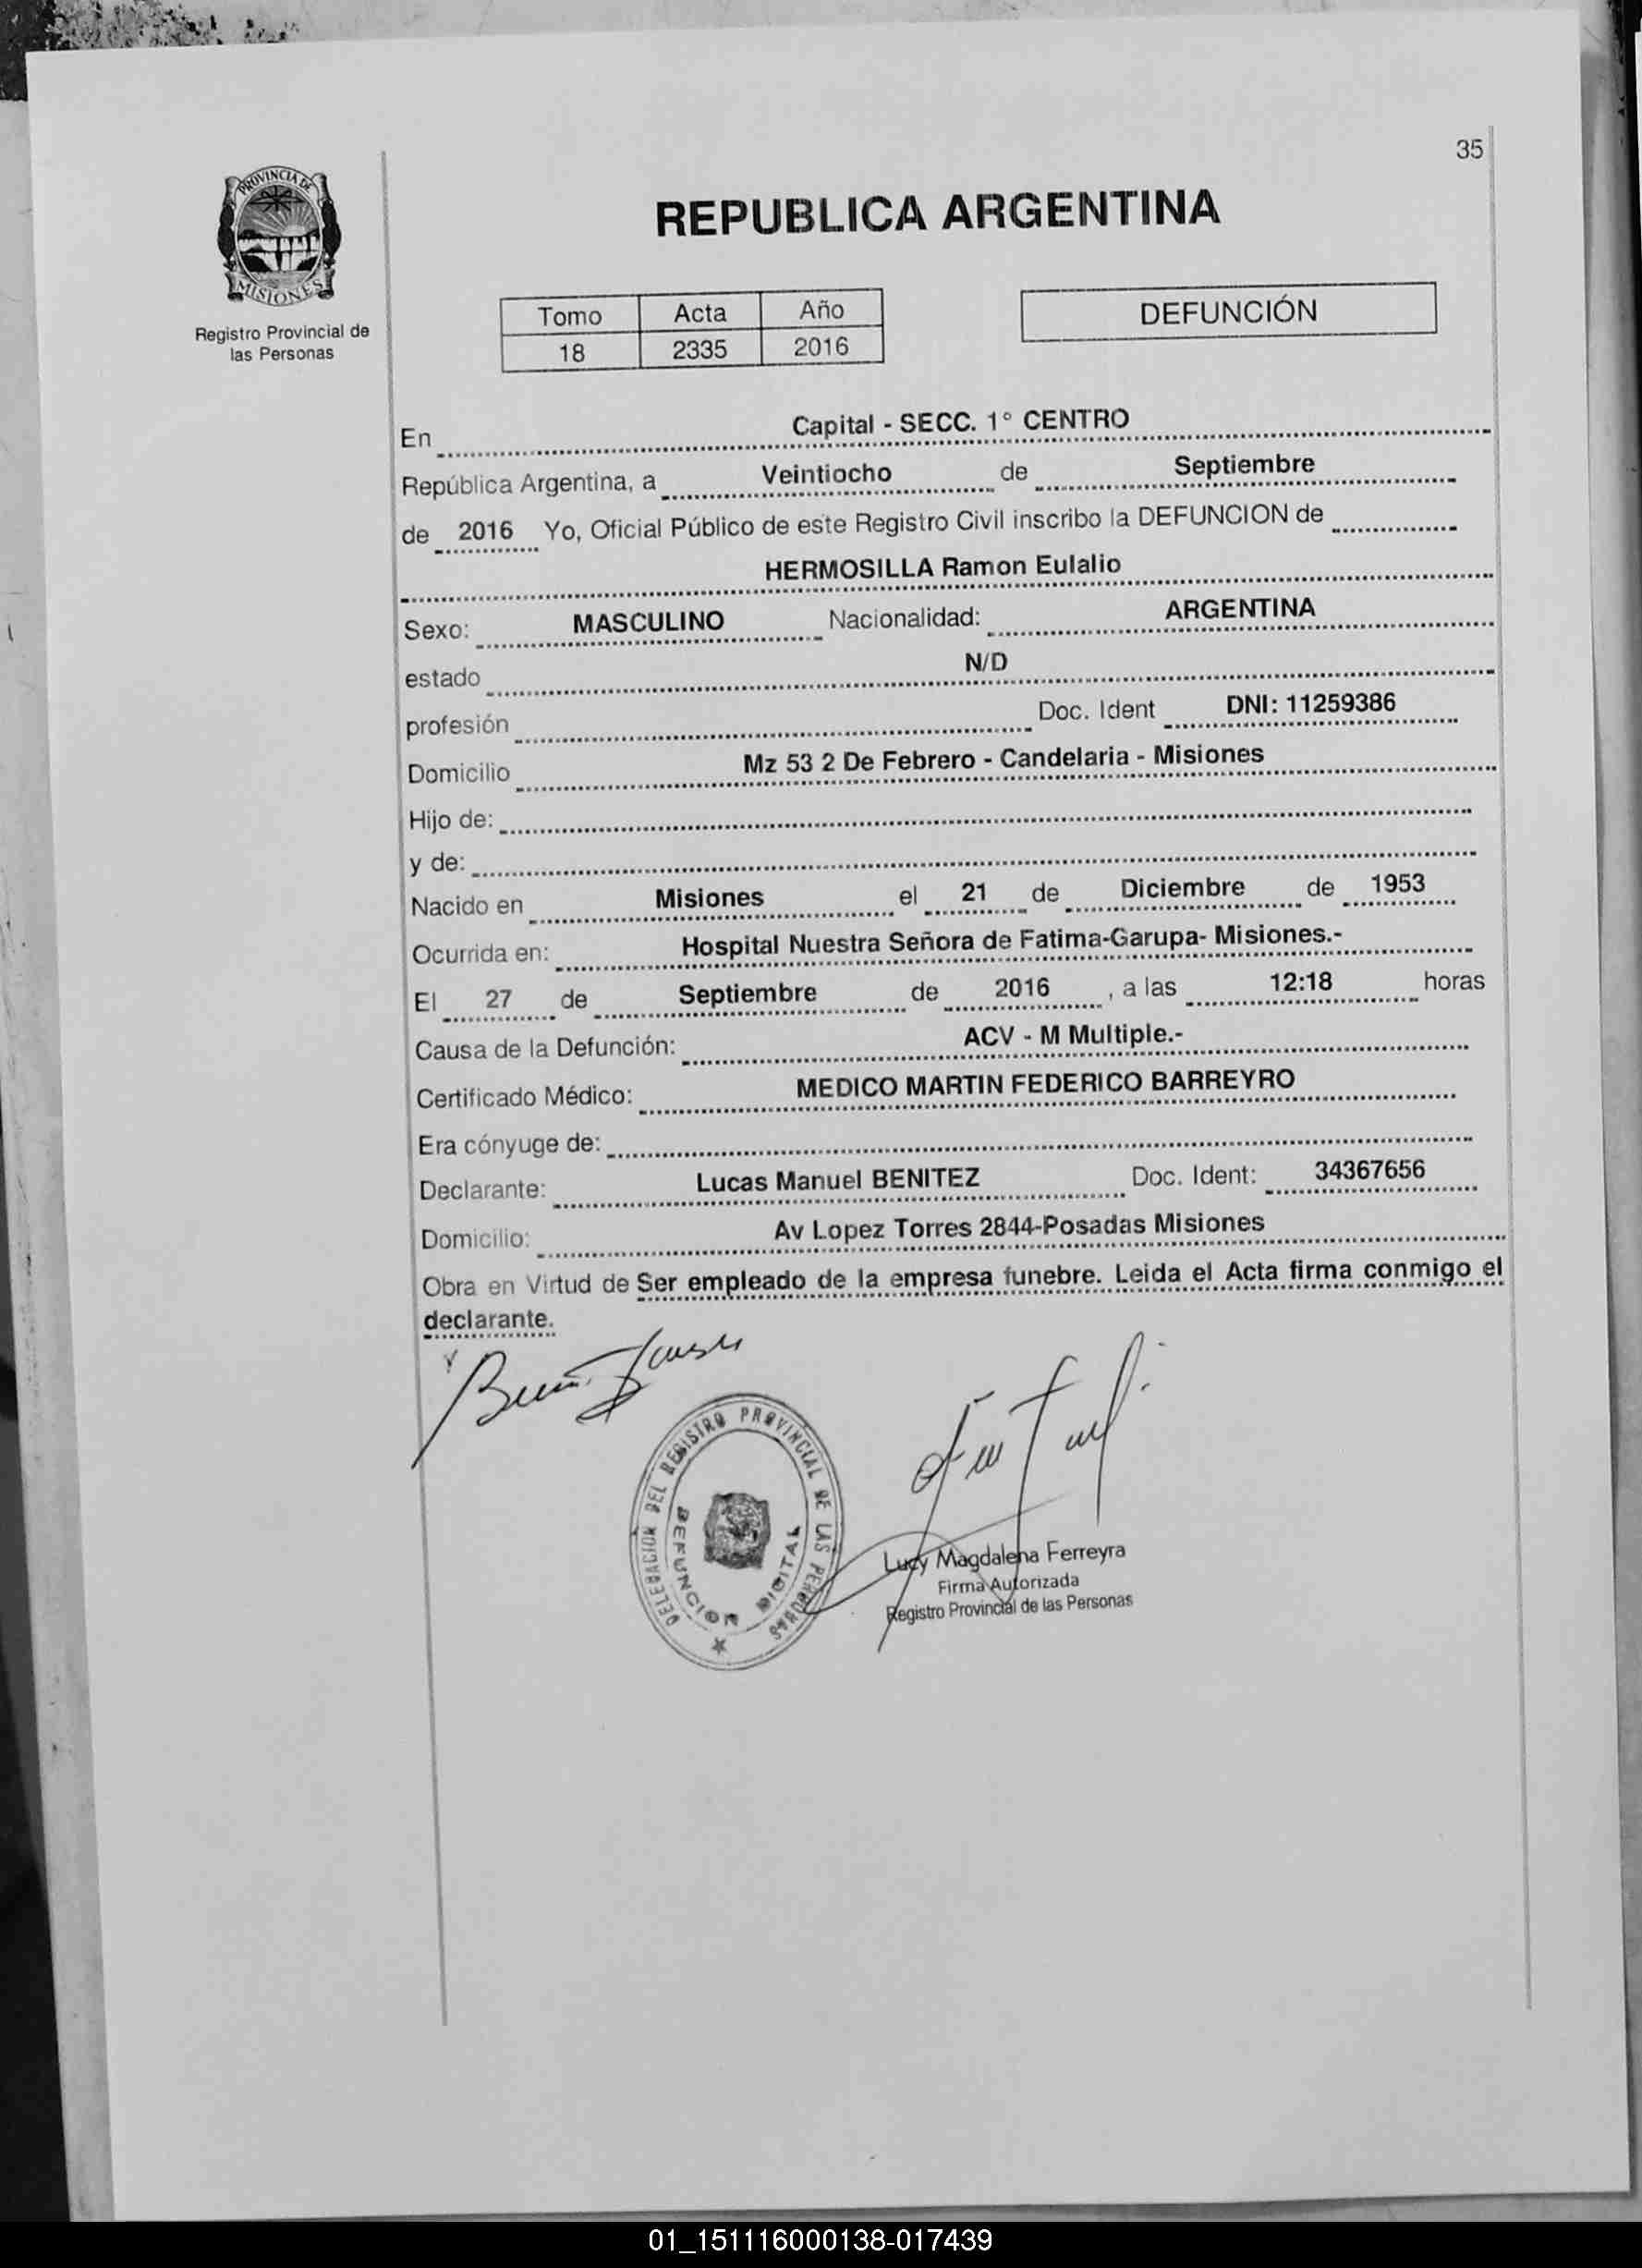 35
PROVINCIA DE
MISIONES
Registro Provincial de
las Personas
REPUBLICA ARGENTINA
Tomo Acta Año
18 2335 2016
DEFUNCIÓN
En Capital - SECC. 1° CENTRO
República Argentina, a Veintiocho de Septiembre
de 2016 Yo, Oficial Público de este Registro Civil inscribo la DEFUNCION de
HERMOSILLA Ramon Eulalio
Sexo: MASCULINO Nacionalidad: ARGENTINA
estado N/D
profesión Doc. Ident DNI: 11259386
Domicilio Mz 53 2 De Febrero - Candelaria - Misiones
Hijo de:
y de:
Nacido en Misiones el 21 de Diciembre de 1953
Ocurrida en: Hospital Nuestra Señora de Fatima-Garupa- Misiones.-
El 27 de Septiembre de 2016 , a las 12:18 horas
Causa de la Defunción: ACV - M Multiple.-
Certificado Médico: MEDICO MARTIN FEDERICO BARREYRO
Era cónyuge de:
Declarante: Lucas Manuel BENITEZ Doc. Ident: 34367656
Domicilio: Av Lopez Torres 2844-Posadas Misiones
Obra en Virtud de Ser empleado de la empresa funebre. Leida el Acta firma conmigo el
declarante.
DELEGACION DEL REGISTRO PROVINCIAL DE LAS PERSONAS
DEFUNCION DIGITAL
Lucy Magdalena Ferreyra
Firma Autorizada
Registro Provincial de las Personas
01_151116000138-017439